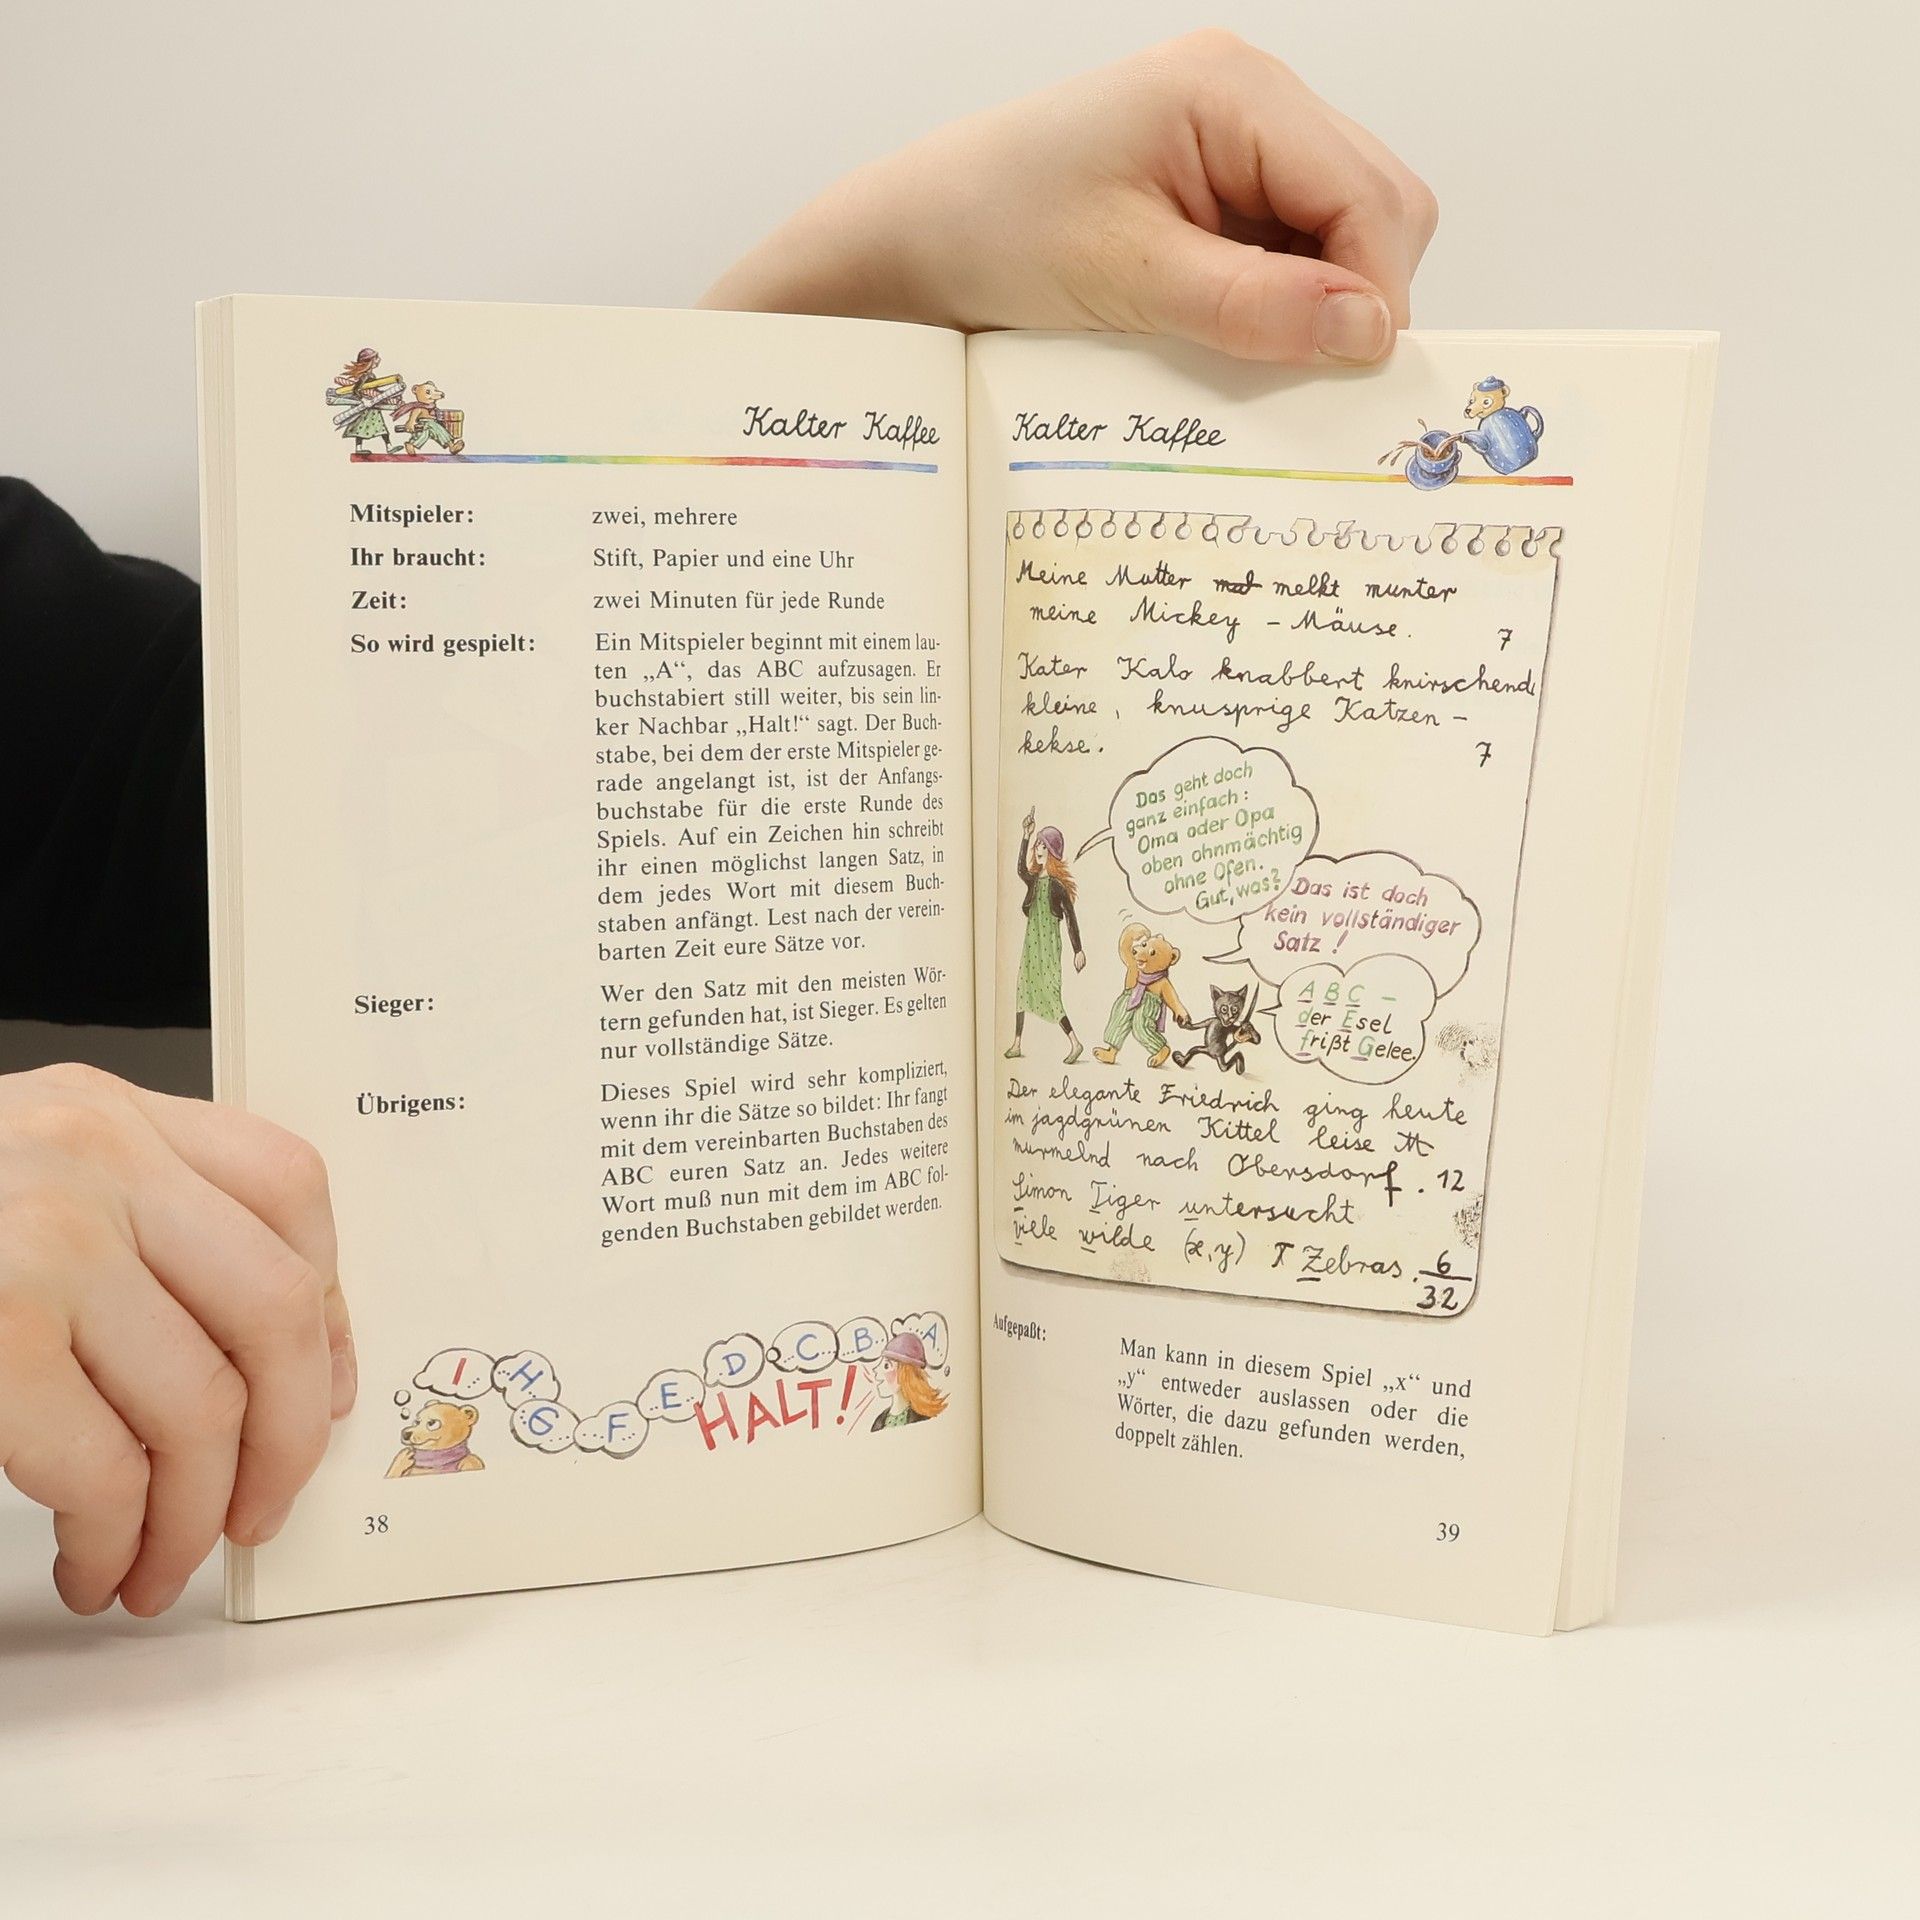 Kalter Kaffee
Mitspieler: zwei, mehrere
Ihr braucht: Stift, Papier und eine Uhr
Zeit: zwei Minuten für jede Runde
So wird gespielt: Ein Mitspieler beginnt mit einem lau-
ten „A“, das ABC aufzusagen. Er
buchstabiert still weiter, bis sein lin-
ker Nachbar „Halt!“ sagt. Der Buch-
stabe, bei dem der erste Mitspieler ge-
rade angelangt ist, ist der Anfangs-
buchstabe für die erste Runde des
Spiels. Auf ein Zeichen hin schreibt
ihr einen möglichst langen Satz, in
dem jedes Wort mit diesem Buch-
staben anfängt. Lest nach der verein-
barten Zeit eure Sätze vor.
Sieger: Wer den Satz mit den meisten Wör-
tern gefunden hat, ist Sieger. Es gelten
nur vollständige Sätze.
Übrigens: Dieses Spiel wird sehr kompliziert,
wenn ihr die Sätze so bildet: Ihr fangt
mit dem vereinbarten Buchstaben des
ABC euren Satz an. Jedes weitere
Wort muß nun mit dem im ABC fol-
genden Buchstaben gebildet werden.
I H G F E D C B A
HALT!
38
Kalter Kaffee
Meine Mutter melkt munter
meine Mickey - Mäuse. 7
Kater Kalo knabbert knirschend
kleine, knusprige Katzen-
kekse. 7
Das geht doch
ganz einfach:
Oma oder Opa
oben ohnmächtig
ohne Ofen.
Gut, was?
Das ist doch
kein vollständiger
Satz!
A B C -
der Esel
frißt Gelee.
Der elegante Friedrich ging heute
im jagdgrünen Kittel leise M
murmelnd nach Obersdorf. 12
Simon Tiger untersucht
viele wilde (x,y) Zebras. 6
32
Aufgepaßt:
Man kann in diesem Spiel „x“ und
„y“ entweder auslassen oder die
Wörter, die dazu gefunden werden,
doppelt zählen.
39